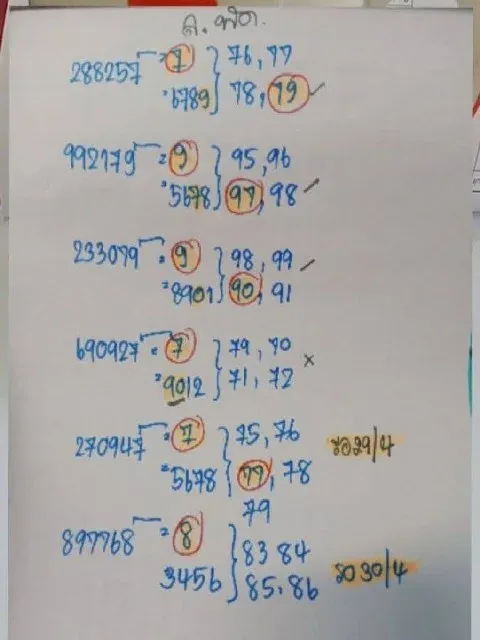 อ. พัก.
288257 = 7 } 76, 77
= 6789 } 78, 79 ✓
992179 = 9 } 95, 96
= 5678 } 97, 98 ✓
233079 = 9 } 98, 99 ✓
= 8901 } 90, 91
690927 = 7 } 79, 70 ×
= 9012 } 71, 72
270947 = 7 } 75, 76 รอ29/4
= 5678 } 77, 78
79
897768 = 8 } 83 84
3456 } 85, 86 รอ 30/4